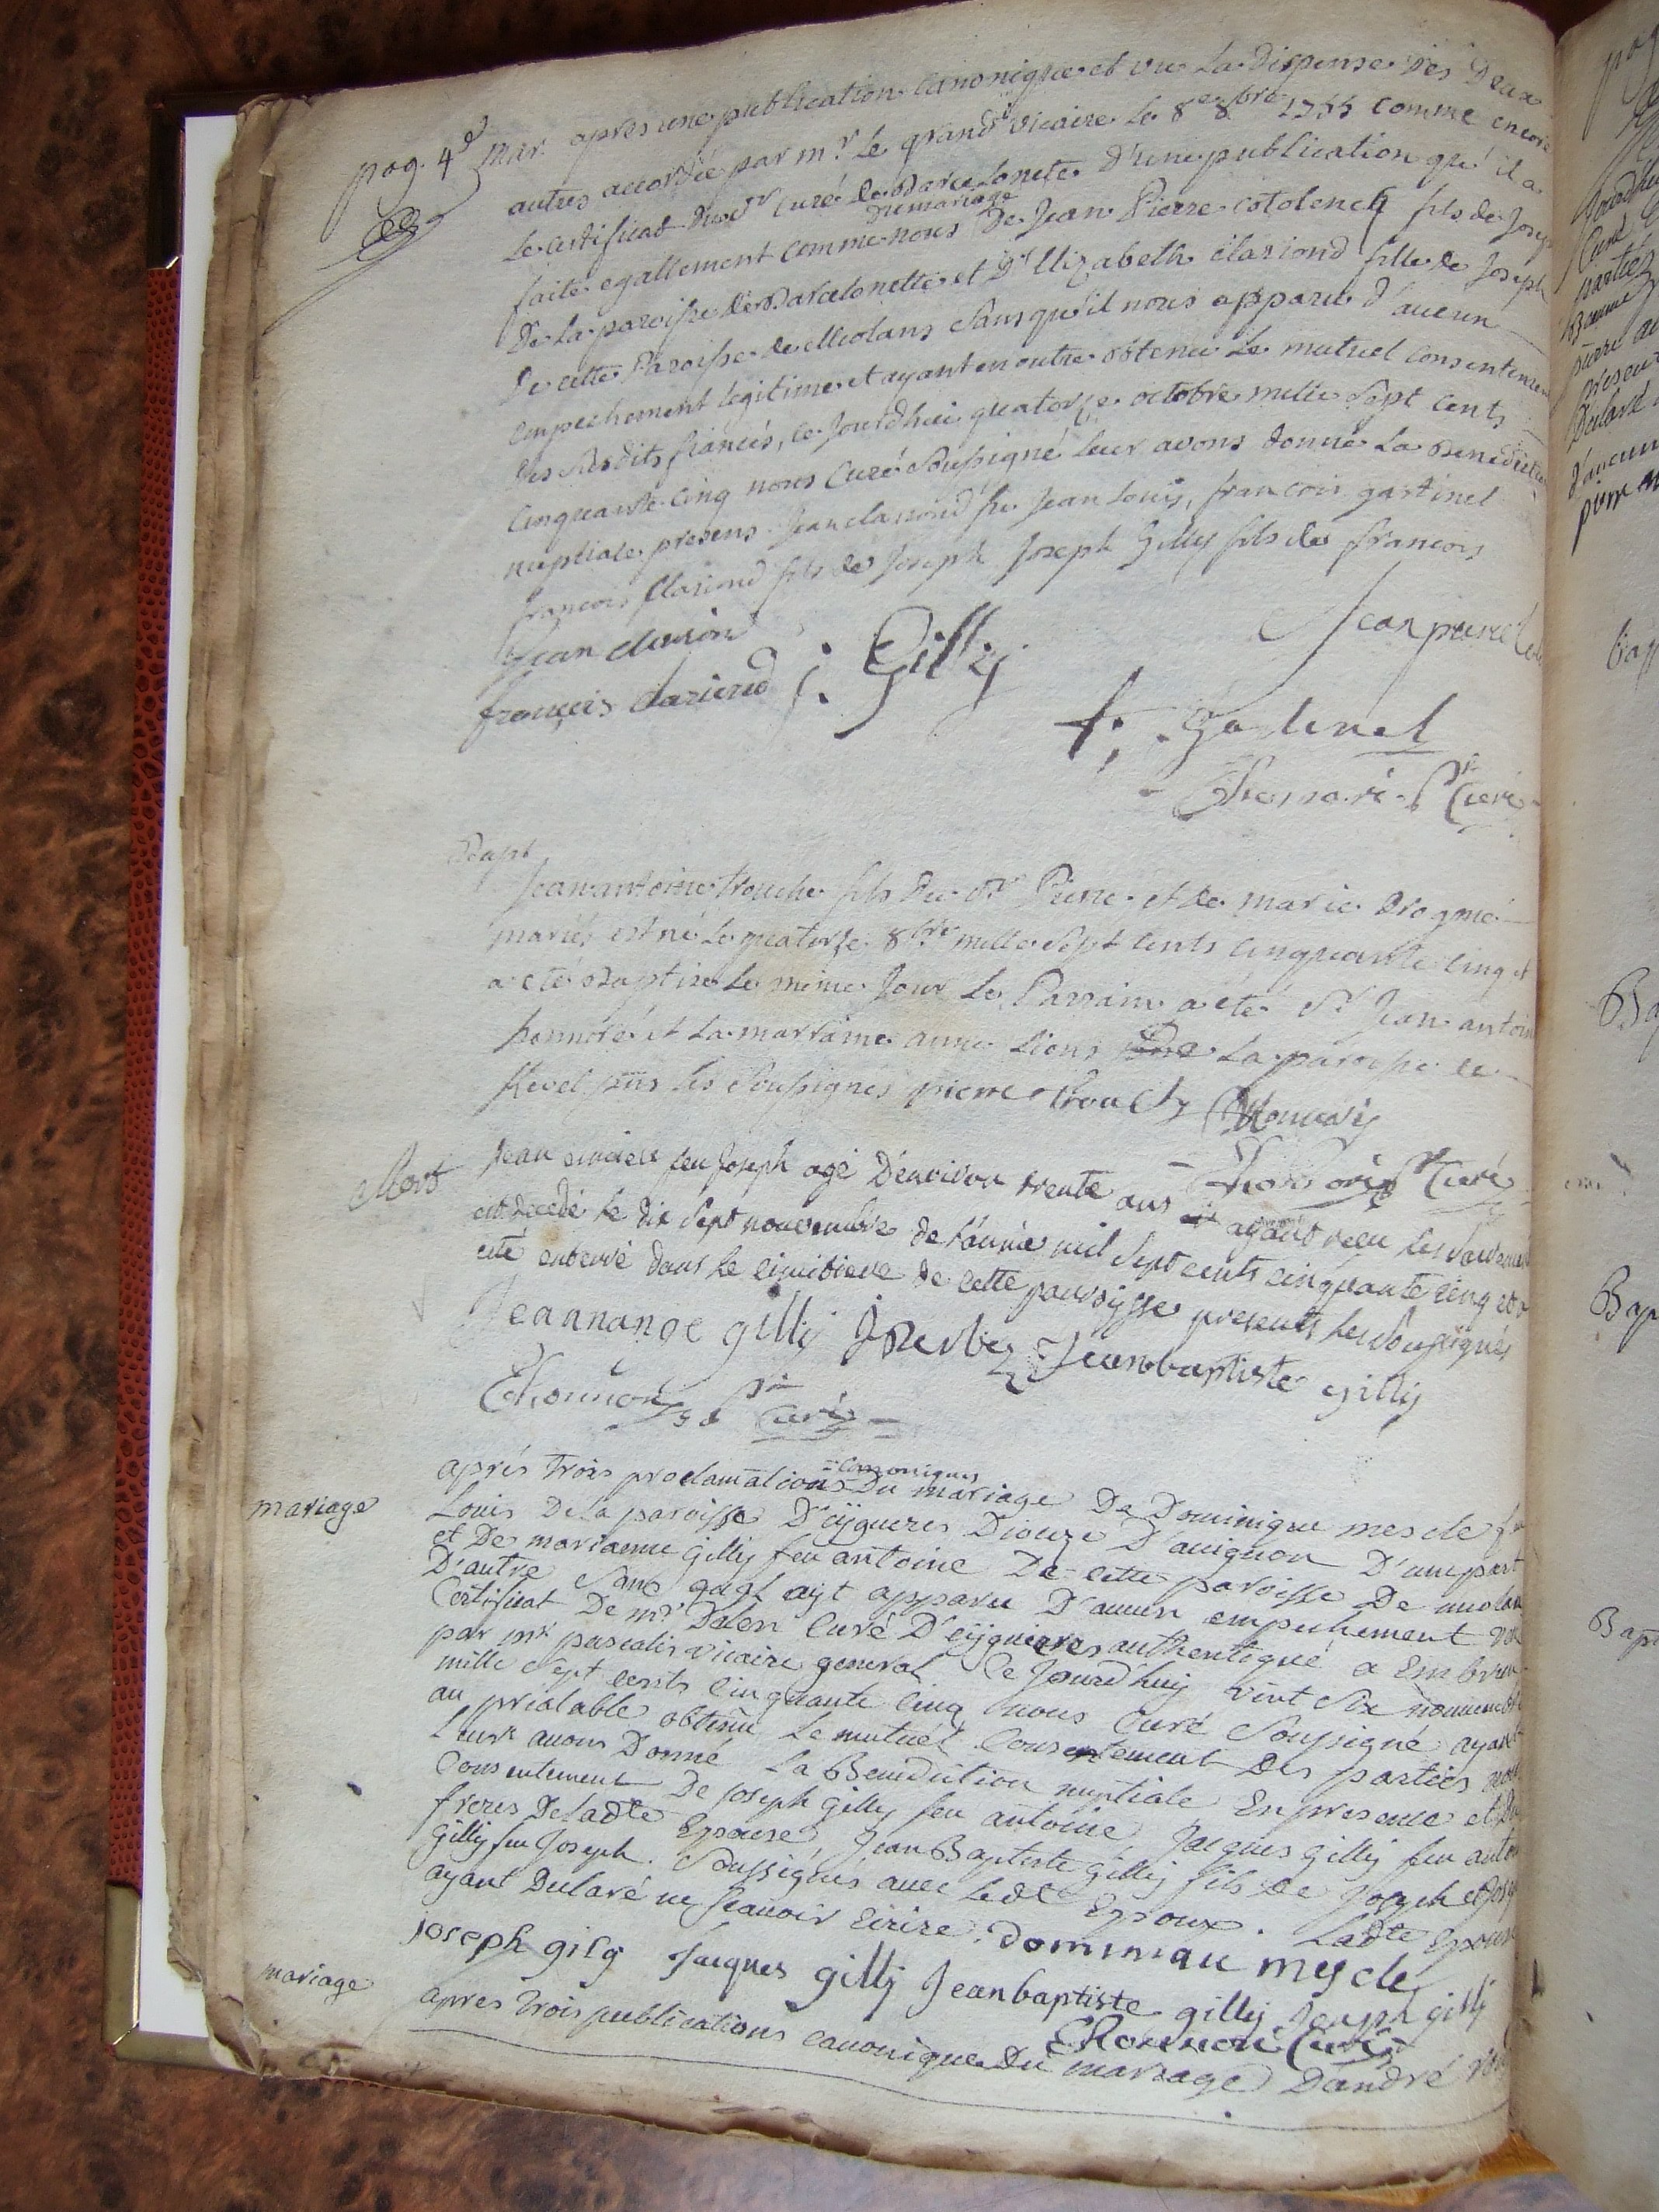 pag. 4e Mar. après une publication canonique et vue La dispense des Deux
autres accordée par mr. Le grand vicaire le 8e 8bre 1755 comme encore
Le certificat du sr curé de Barcelonete d'une publication qu'il a
faite egallement comme nous du mariage De Jean Pierre cotolench fils de Joseph
De La paroisse de Barcelonette et Dlle Elizabeth clariond fille de Joseph
De cette Paroisse de Meolans sans qu'il nous apparu d'aucun
empechement legitime et ayant en outre obtenu Le mutuel consentement
des susdits fiancés, ce Jourdhui quatorze octobre mille sept cents
cinquante cinq nous Curé soussigné leur avons donné La Benediction
nuptiale presens Jean clariond feu Jean Louis, francois gastinel
francois clariond fils de Joseph Joseph Gilly fils de francois
Jean clarion
Jean pierre
françois clariond j. Gilly
f. Gastinel
Curé
Bapt
Jean antoine trouche fils du Sr Pierre et de marie
mariés est né Le quatorze 8bre mille sept cents cinquante cinq et
a eté Baptisé Le même Jour Le Parrain a été Sr Jean antoine
honnoré et La marraine anne Lions La paroisse de
Revel les soussignés pierre trouche
Curé
Mort
Jean feu Joseph agé D'environ trente ans ayant recu les sacremens
est decedé le dix sept nouembre de l'année mil sept cents cinquante cinq et a
eté enterré dans le cimitiere de cette paroysse presents les soussignés
Jeannange gilly J Derbez Jean baptiste gilly
Curé
mariage
aprés trois proclamations canoniques Du mariage De Dominique mescle feu
Louis De la paroisse D'eÿgueres Dioceze D'auignon D'une part
et De marianne Gilly feu antoine De cette paroisse De meolans
D'autre Sans quil ayt apparu D'aucun empechement
Certificat De mr. Dalen Curé D'eÿguieres authentiqué a Embrun
par mr pascalis vicaire general Ce Jourd'huy vint Six nouembre
mille sept cents cinquante cinq nous Curé soussigné ayant
au prealable obtenu Le mutuel Consentement Des parties nous
Leurs auons Donné La Benediction nuptiale En presence et Du
Consentement De Joseph gilly feu antoine, Jacques gilly feu antoine
freres De ladte Epouse, Jean Baptiste gilly fils de Joseph et Joseph
Gilly feu Joseph. Soussignés auec Ledt Epoux. Ladte Epouse
ayant Declaré ne scauoir Ecrire. Dominiau mescle
joseph gilg Jacques gillj Jean baptiste gillij Joseph gilly
Curé
mariage
apres trois publications canonique Du mariage D'andré